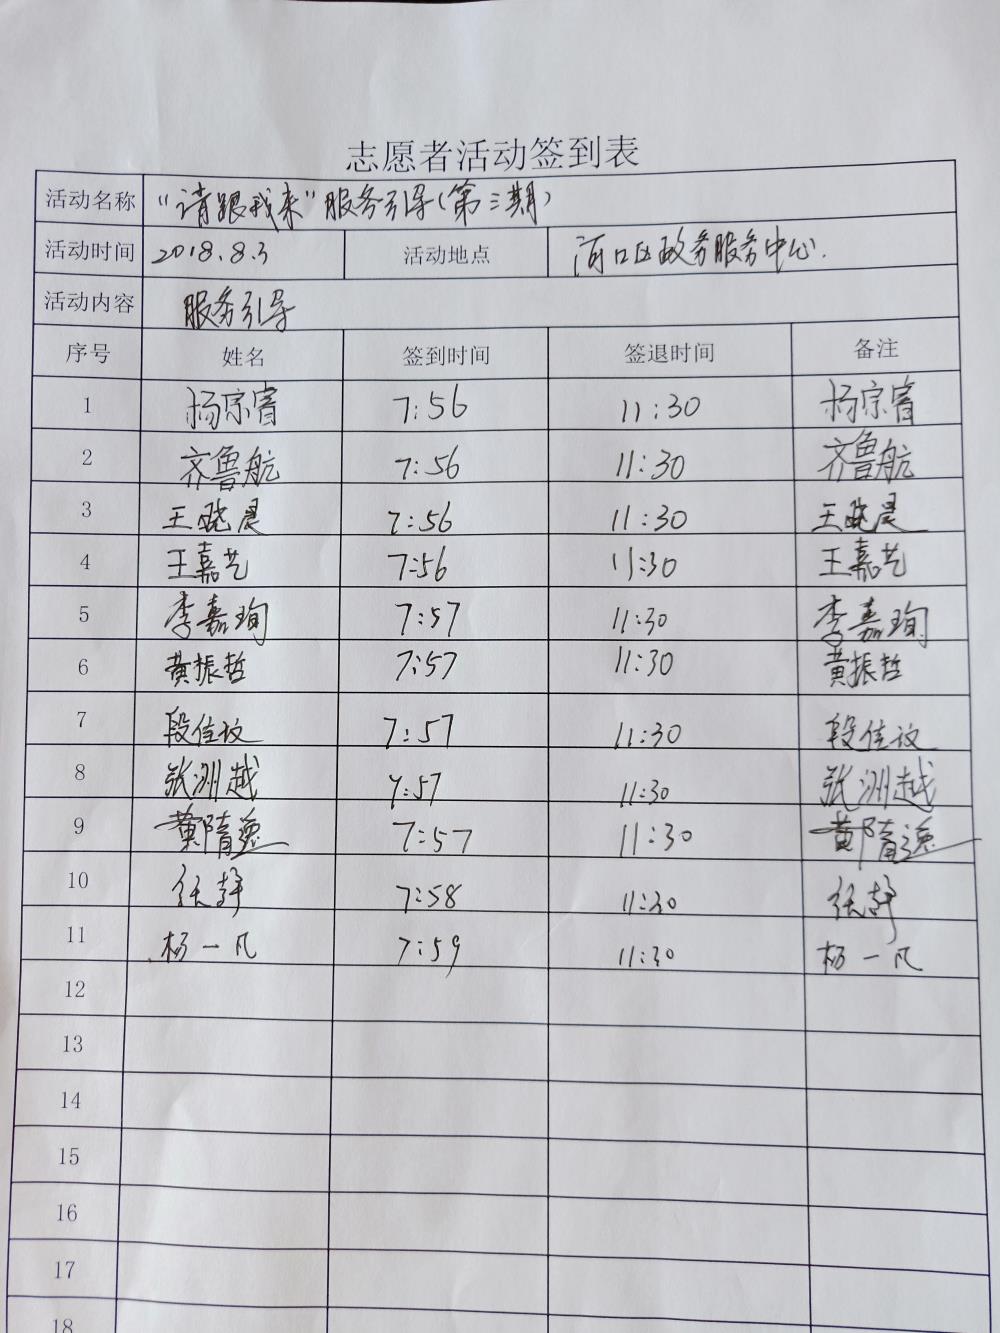 志愿者活动签到表
活动名称 “请跟我来”服务引导(第三期)
活动时间 2018.8.3 活动地点 河口区政务服务中心.
活动内容 服务引导
序号 姓名 签到时间 签退时间 备注
1 杨宗睿 7:56 11:30 杨宗睿
2 齐鲁航 7:56 11:30 齐鲁航
3 王晓晨 7:56 11:30 王晓晨
4 王嘉艺 7:56 11:30 王嘉艺
5 李嘉珣 7:57 11:30 李嘉珣
6 黄振哲 7:57 11:30 黄振哲
7 段佳 7:57 11:30 段佳
8 张洲越 7:57 11:30 张洲越
9 7:57 11:30
10 任静 7:58 11:30 任静
11 杨一凡 7:59 11:30 杨一凡
12
13
14
15
16
17
18